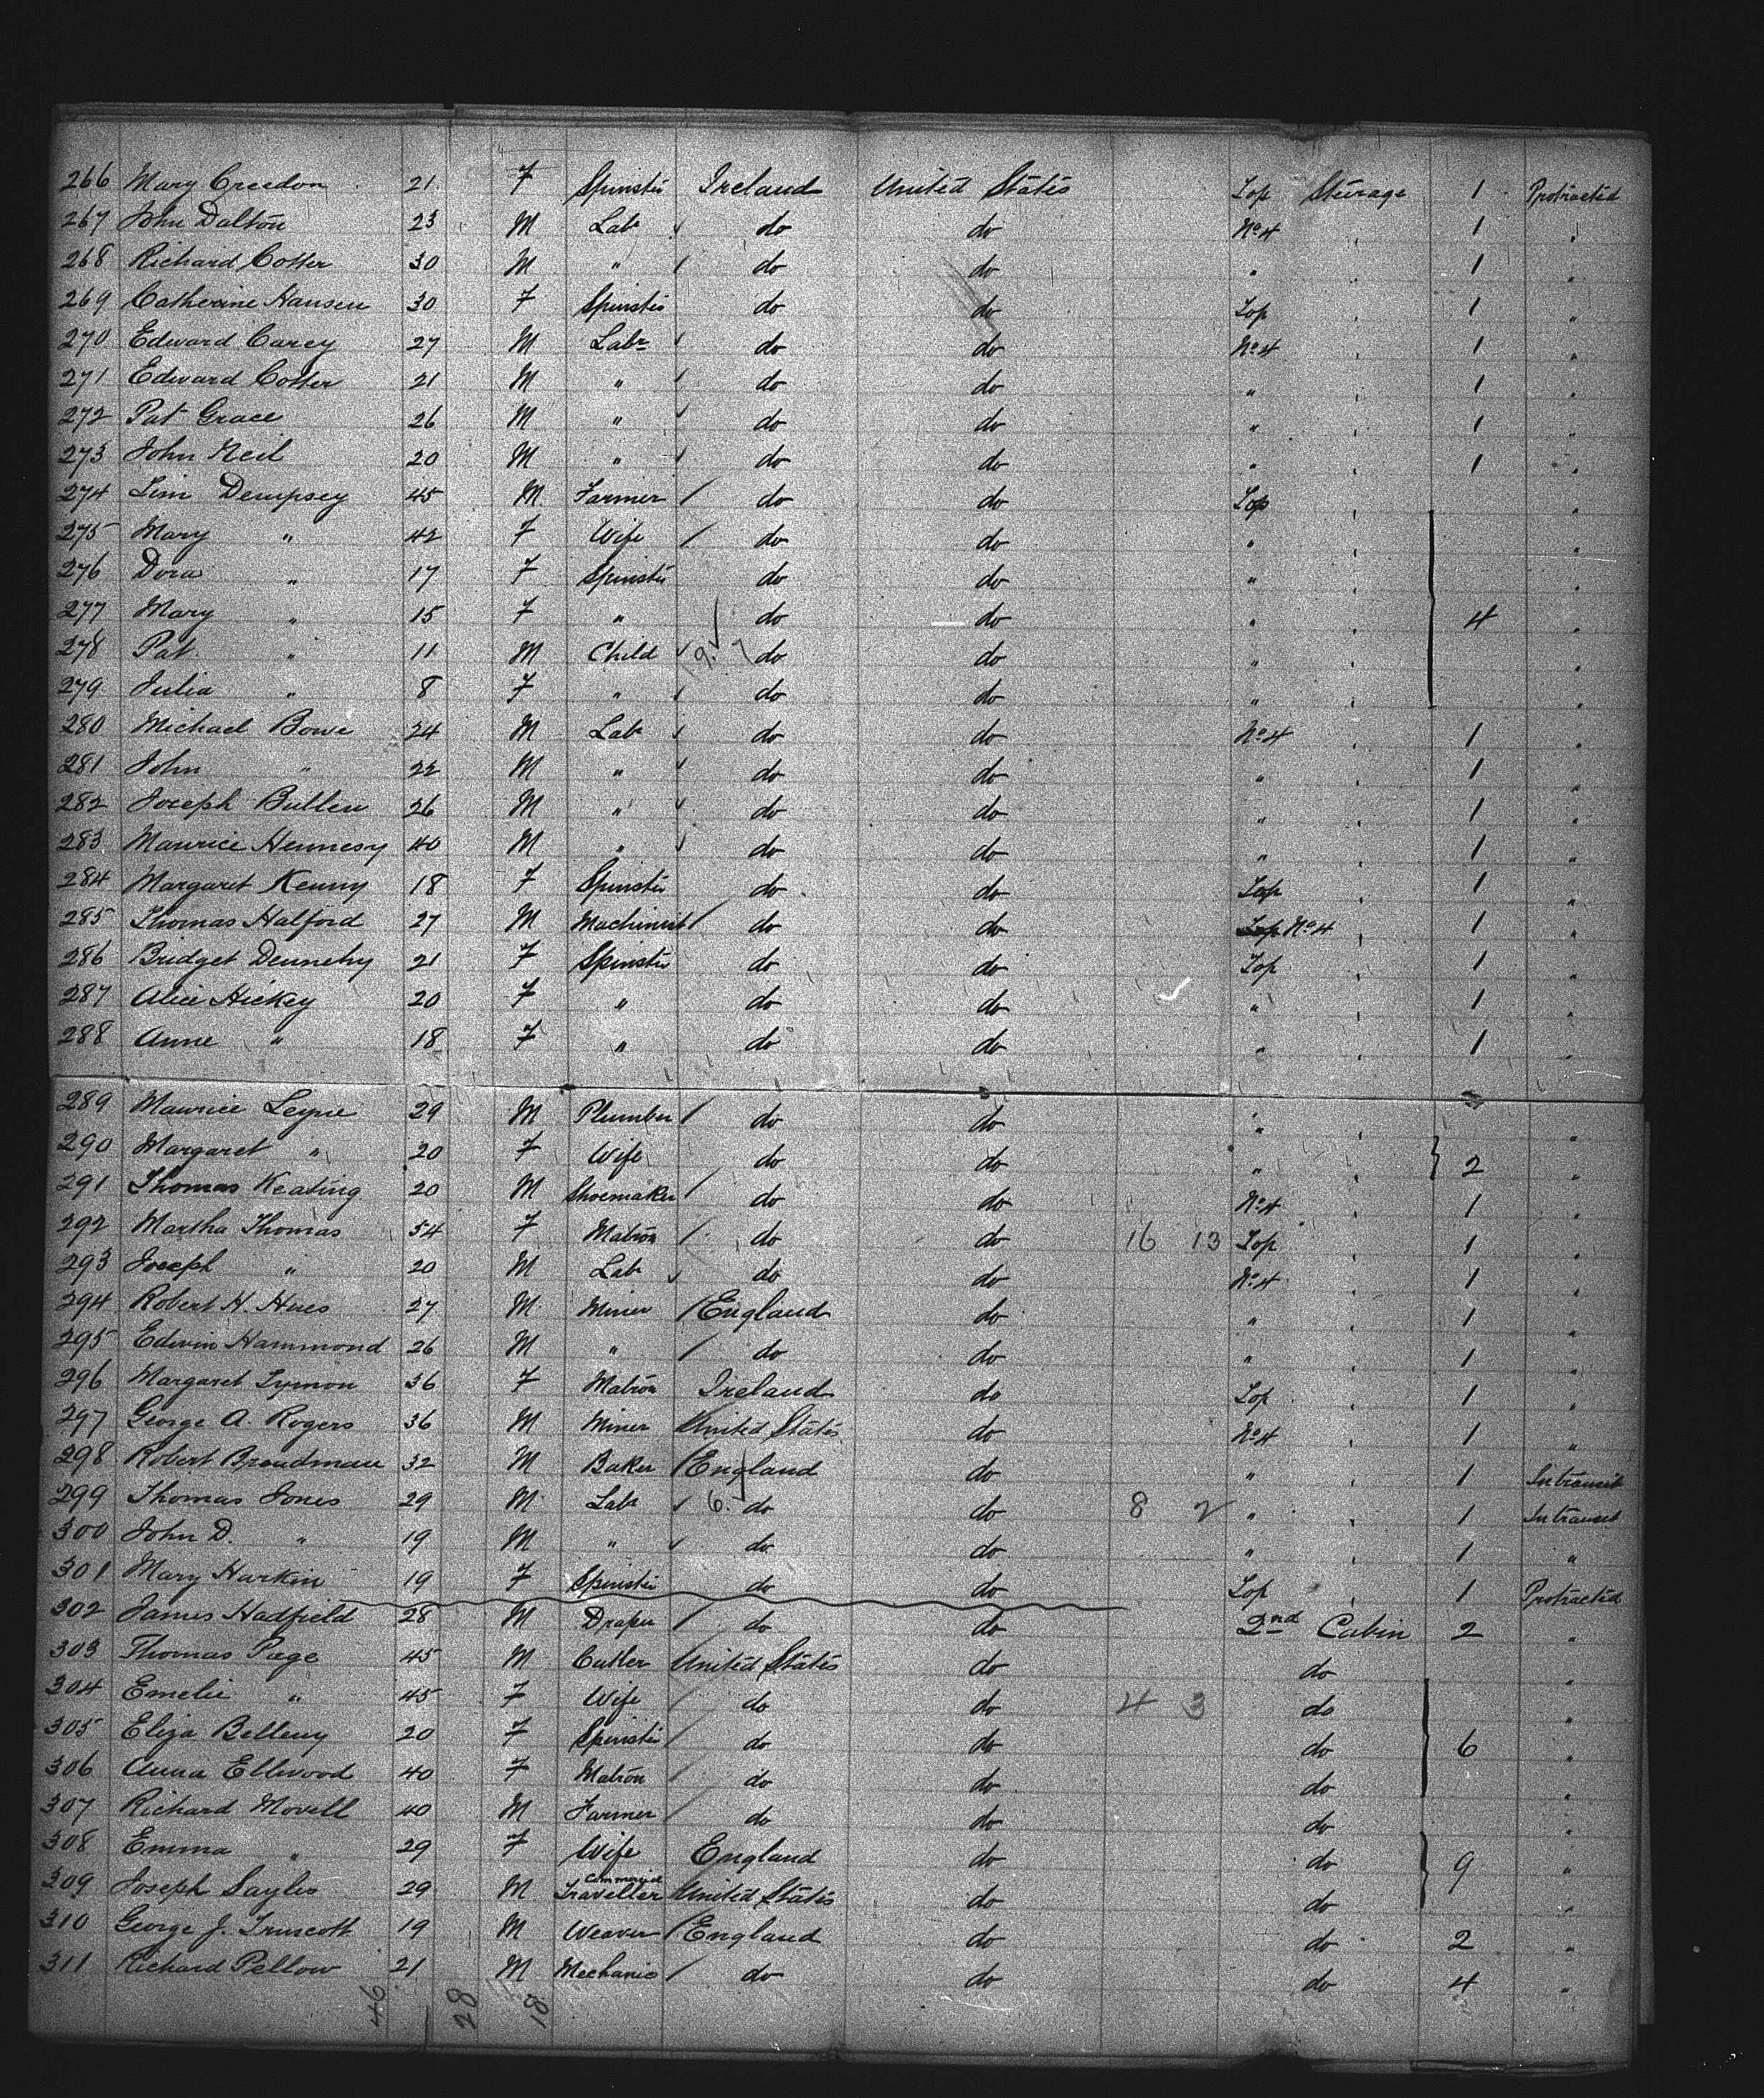 266 Mary Creedon 21 F Spinster Ireland United States Top Steerage 1 Protracted
267 John Dalton 23 M Labr do do No 4 " 1 "
268 Richard Cotter 30 M " do do " " 1 "
269 Catherine Hansen 30 F Spinster do do Top " 1 "
270 Edward Carey 27 M Labr do do No 4 " 1 "
271 Edward Cotter 21 M " do do " " 1 "
272 Pat Grace 26 M " do do " " 1 "
273 John Neil 20 M " do do " " 1 "
274 Jim Dempsey 45 M Farmer do do Top " "
275 Mary " 42 F Wife do do " " "
276 Dora " 17 F Spinster do do " " "
277 Mary " 15 F " do do " " 4 "
278 Pat " 11 M Child 19 do do " " "
279 Julia " 8 F " do do " " "
280 Michael Bowe 24 M Labr do do No 4 " 1 "
281 John " 22 M " do do " " 1 "
282 Joseph Bullen 26 M " do do " " 1 "
283 Maurice Hennesy 40 M " do do " " 1 "
284 Margaret Kenny 18 F Spinster do do Top " 1 "
285 Thomas Halford 27 M Machinist do do Top No 4 " 1 "
286 Bridget Dennehy 21 F Spinster do do Top " 1 "
287 Alice Hickey 20 F " do do " " 1 "
288 Anne " 18 F " do do " " 1 "
289 Maurice Leyne 29 M Plumber do do " " "
290 Margaret " 20 F Wife do do " " 2 "
291 Thomas Keating 20 M Shoemaker do do No 4 " 1 "
292 Martha Thomas 54 F Matron do do 16 13 Top " 1 "
293 Joseph " 20 M Labr do do No 4 " 1 "
294 Robert H. Hues 27 M Miner England do " " 1 "
295 Edwin Hammond 26 M " do do " " 1 "
296 Margaret Tymon 36 F Matron Ireland do Top " 1 "
297 George A. Rogers 36 M Miner United States do No 4 " 1 "
298 Robert Broadman 32 M Baker England do " " 1 In transit
299 Thomas Jones 29 M Labr 6 do do 8 2 " " 1 In transit
300 John D. " 19 M " do do " " 1 "
301 Mary Harkin 19 F Spinster do do Top " 1 Protracted
302 James Hadfield 28 M Draper do do 2nd Cabin 2 "
303 Thomas Page 45 M Cutler United States do do "
304 Emelie " 45 F Wife do do 4 3 do "
305 Eliza Belleny 20 F Spinster do do do 6 "
306 Anna Ellwood 40 F Matron do do do "
307 Richard Movell 40 M Farmer do do do "
308 Emma " 29 F Wife England do do 9 "
309 Joseph Sayles 29 M Commercial Traveller United States do do "
310 George J. Truscott 19 M Weaver England do do 2 "
311 Richard Pellow 21 M Mechanic do do do 4 "
46 28 18